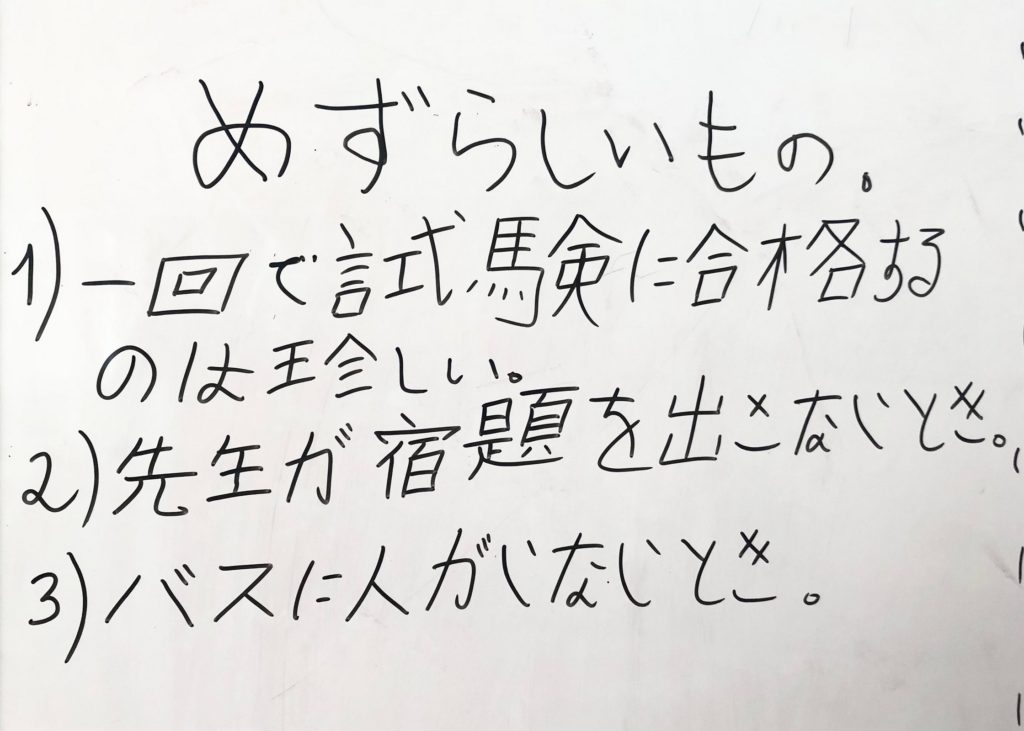 めずらしいもの.
1) 一回で試験に合格する
のは珍しい。
2) 先生が宿題を出さないとき。
3) バスに人がいないとき。